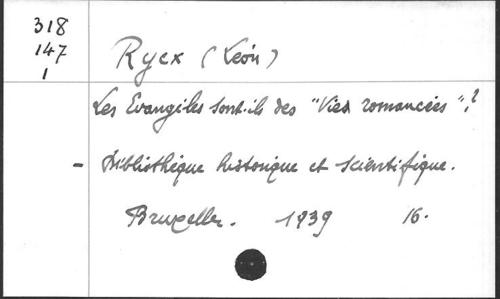 318
147
1
Rycx (Léon)
Les Evangiles sont-ils des "Vies romancées"?
- Bibliothèque historique et scientifique.
Bruxelles. 1939 16.